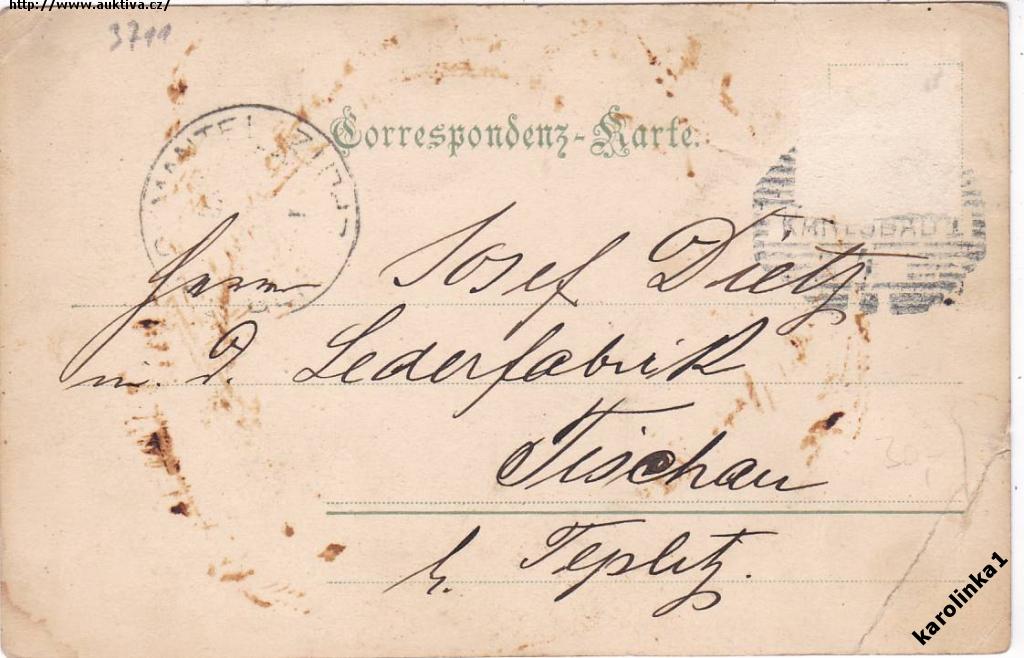 http://www.auktiva.cz/
3711
Correspondenz-Karte.
KARLSBAD 1
Herrn Josef Dietz
in d. Lederfabrik
Tischau
b. Teplitz.
30,-
karolinka1